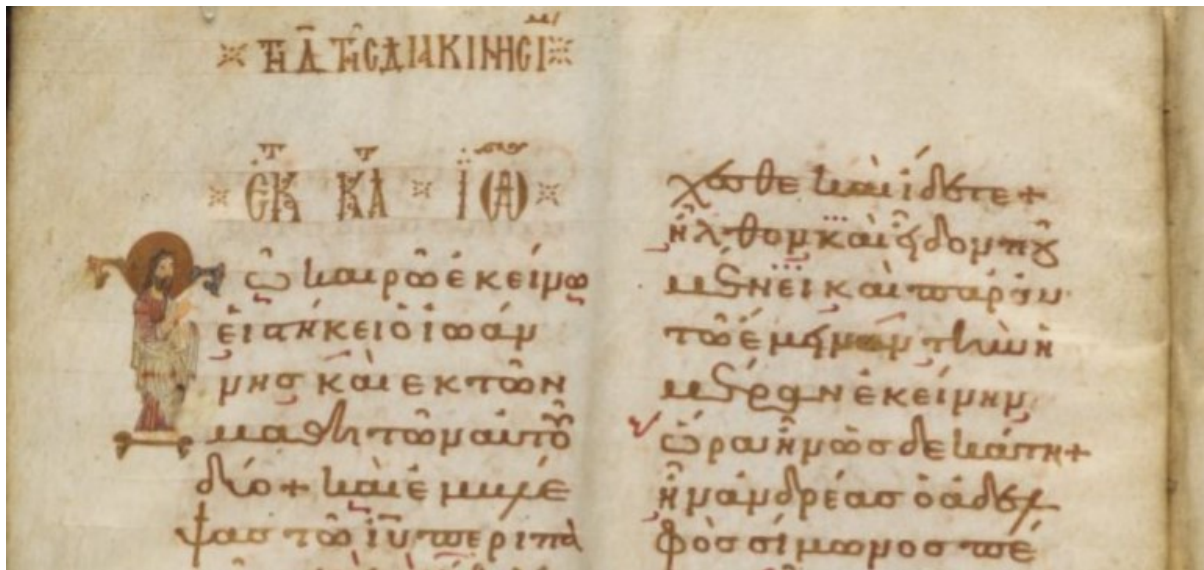 τῆ δ̄ τῆς διακινησί
ἐκ κατ ϊω
ῶ καιρῶ ἐκείνω
εἱστήκει ὁ ἰωάν
νησ καὶ ἐκ τῶν
μαθητῶν αὐτοῦ
δύο + καὶ ἐμβλέ
ψασ τῶ ἰῦ περιπα
χεσθε καὶ ἴδετε +
ἦλθον καὶ εἶδον ποῦ
μένει καὶ παρ αυ
τῶ ἔμειναν τὴν ἡ
μέραν ἐκείνην
ὥρα ἦν ὡσ δεκάτη +
ἦν ἀνδρέασ ὁ ἀδελ
φὸσ σίμωνοσ πέ